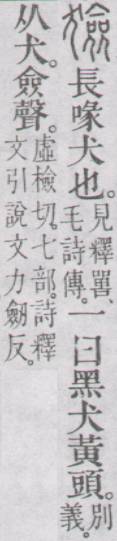 獫長喙犬也。見釋嘼、毛詩傳。一曰黑犬黃頭。別義。
从犬。僉聲。虛檢切。七部。詩釋文引說文力劒反。